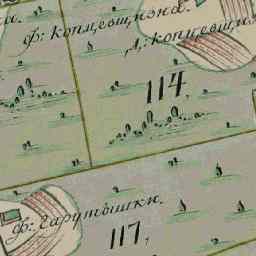 ф: копцевщизна.
д: копцевщи
114.
ф: гарутышки.
117,